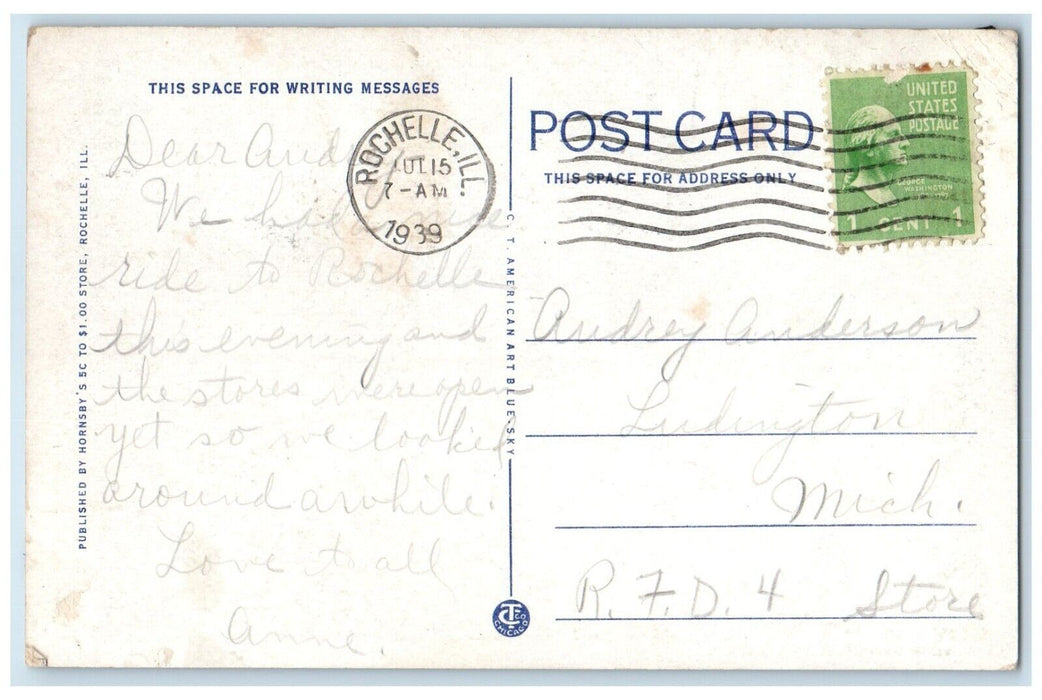 THIS SPACE FOR WRITING MESSAGES
POST CARD
THIS SPACE FOR ADDRESS ONLY
UNITED
STATES
POSTAGE
GEORGE
WASHINGTON
1 CENT 1
ROCHELLE, ILL.
JUL 15
7-AM
1939
Dear
We had a nice
ride to Rochelle
this evening and
the stores were open
yet so we looked
around awhile.
Love to all
Anne.
Audrey Anderson
Ludington
Mich.
R. F. D. 4 Store
PUBLISHED BY HORNSBY'S 5C TO $1.00 STORE, ROCHELLE, ILL.
C. T. AMERICAN ART BLUE-SKY
CT CO
CHICAGO